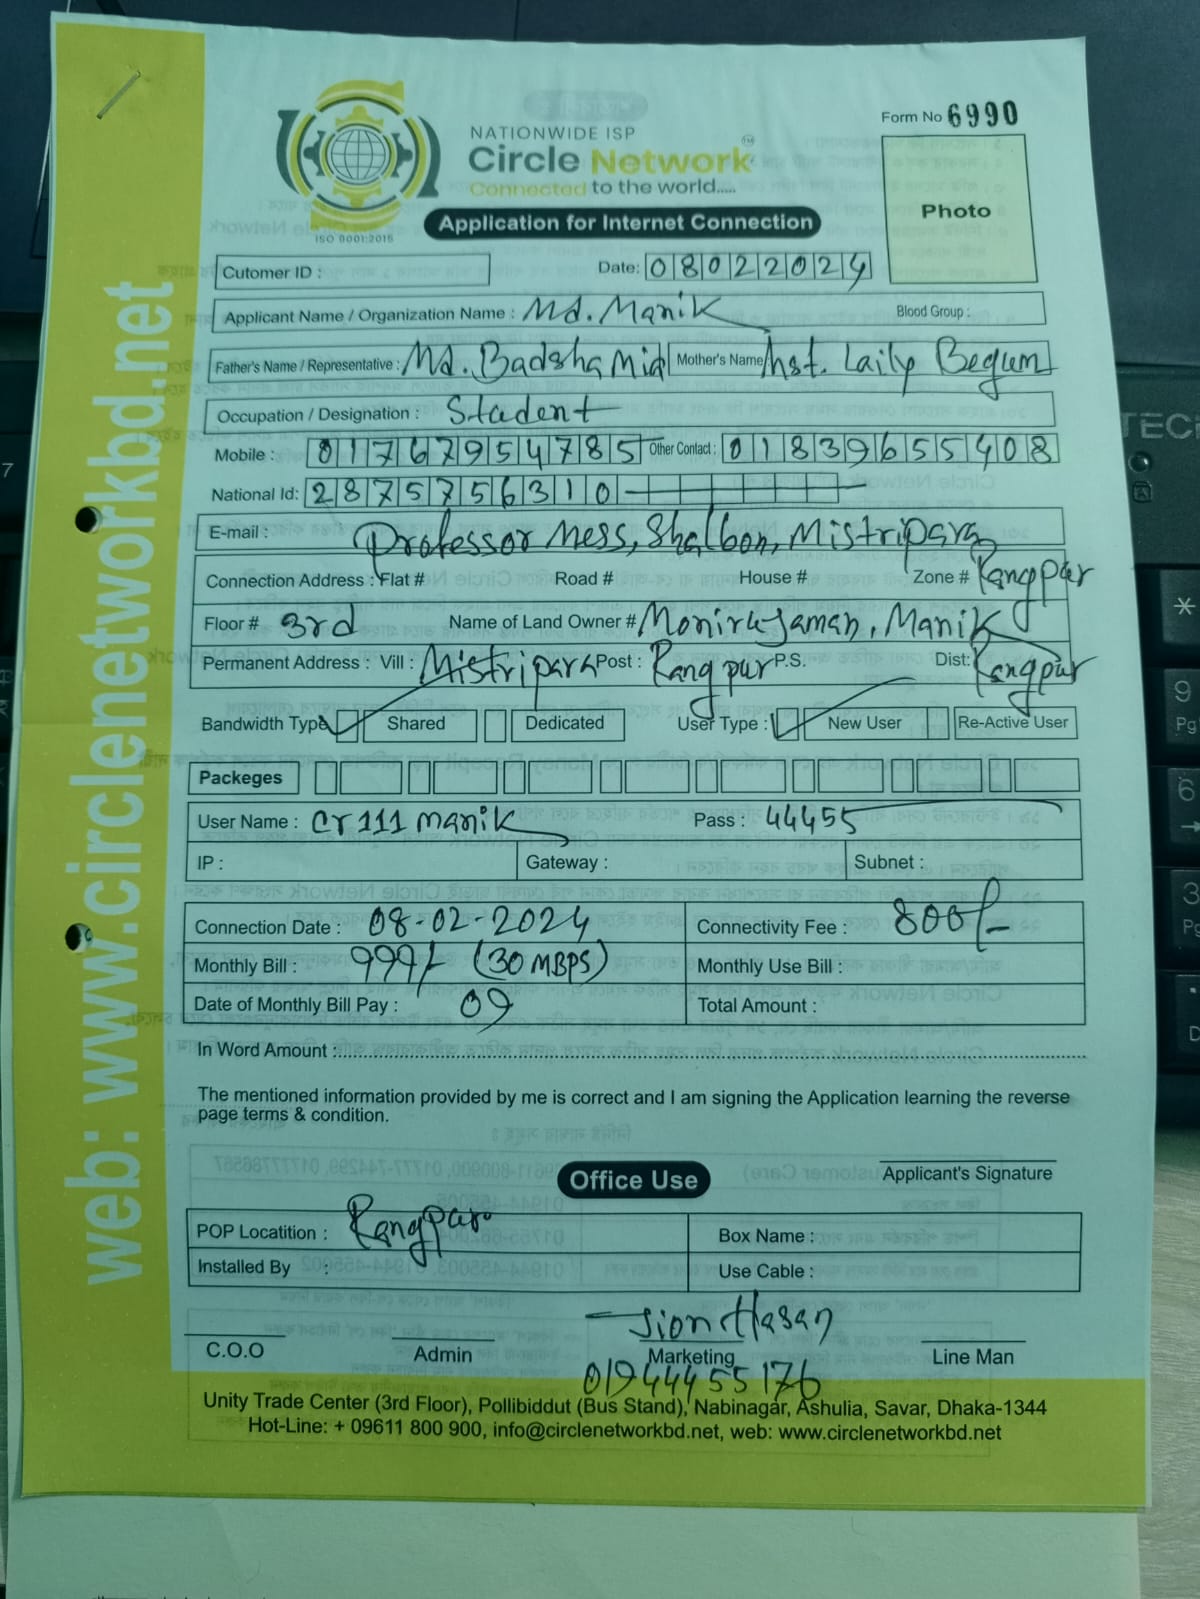 Form No 6990
NATIONWIDE ISP
Circle Network
Connected to the world.....
ISO 9001:2015
Application for Internet Connection
Photo
Cutomer ID :
Date: 08022024
Applicant Name / Organization Name : Md. Manik
Blood Group :
Father's Name / Representative : Md. Badsha Mia Mother's Name Mst. Laily Begum
Occupation / Designation : Stadent
Mobile : 01767954785 Other Contact : 01839655408
National Id: 2875756310
E-mail : Professor Mess, Shalbon, Mistripara
Connection Address : Flat # Road # House # Zone # Rangpur
Floor # 3rd Name of Land Owner # Monirujaman, Manik
Permanent Address : Vill : Mistripara Post : Rangpur P.S. Dist: Rangpur
Bandwidth Type Shared Dedicated User Type : New User Re-Active User
Packeges
User Name : cr111manik Pass : 44455
IP : Gateway : Subnet :
Connection Date : 08-02-2024 Connectivity Fee : 800/-
Monthly Bill : 999/- (30 MBPS) Monthly Use Bill :
Date of Monthly Bill Pay : 09 Total Amount :
In Word Amount :
The mentioned information provided by me is correct and I am signing the Application learning the reverse
page terms & condition.
Applicant's Signature
Office Use
POP Locatition : Rangpur Box Name :
Installed By : Use Cable :
Jion Hasan
C.O.O Admin Marketing Line Man
01944455176
Unity Trade Center (3rd Floor), Pollibiddut (Bus Stand), Nabinagar, Ashulia, Savar, Dhaka-1344
Hot-Line: + 09611 800 900, info@circlenetworkbd.net, web: www.circlenetworkbd.net
web: www.circlenetworkbd.net